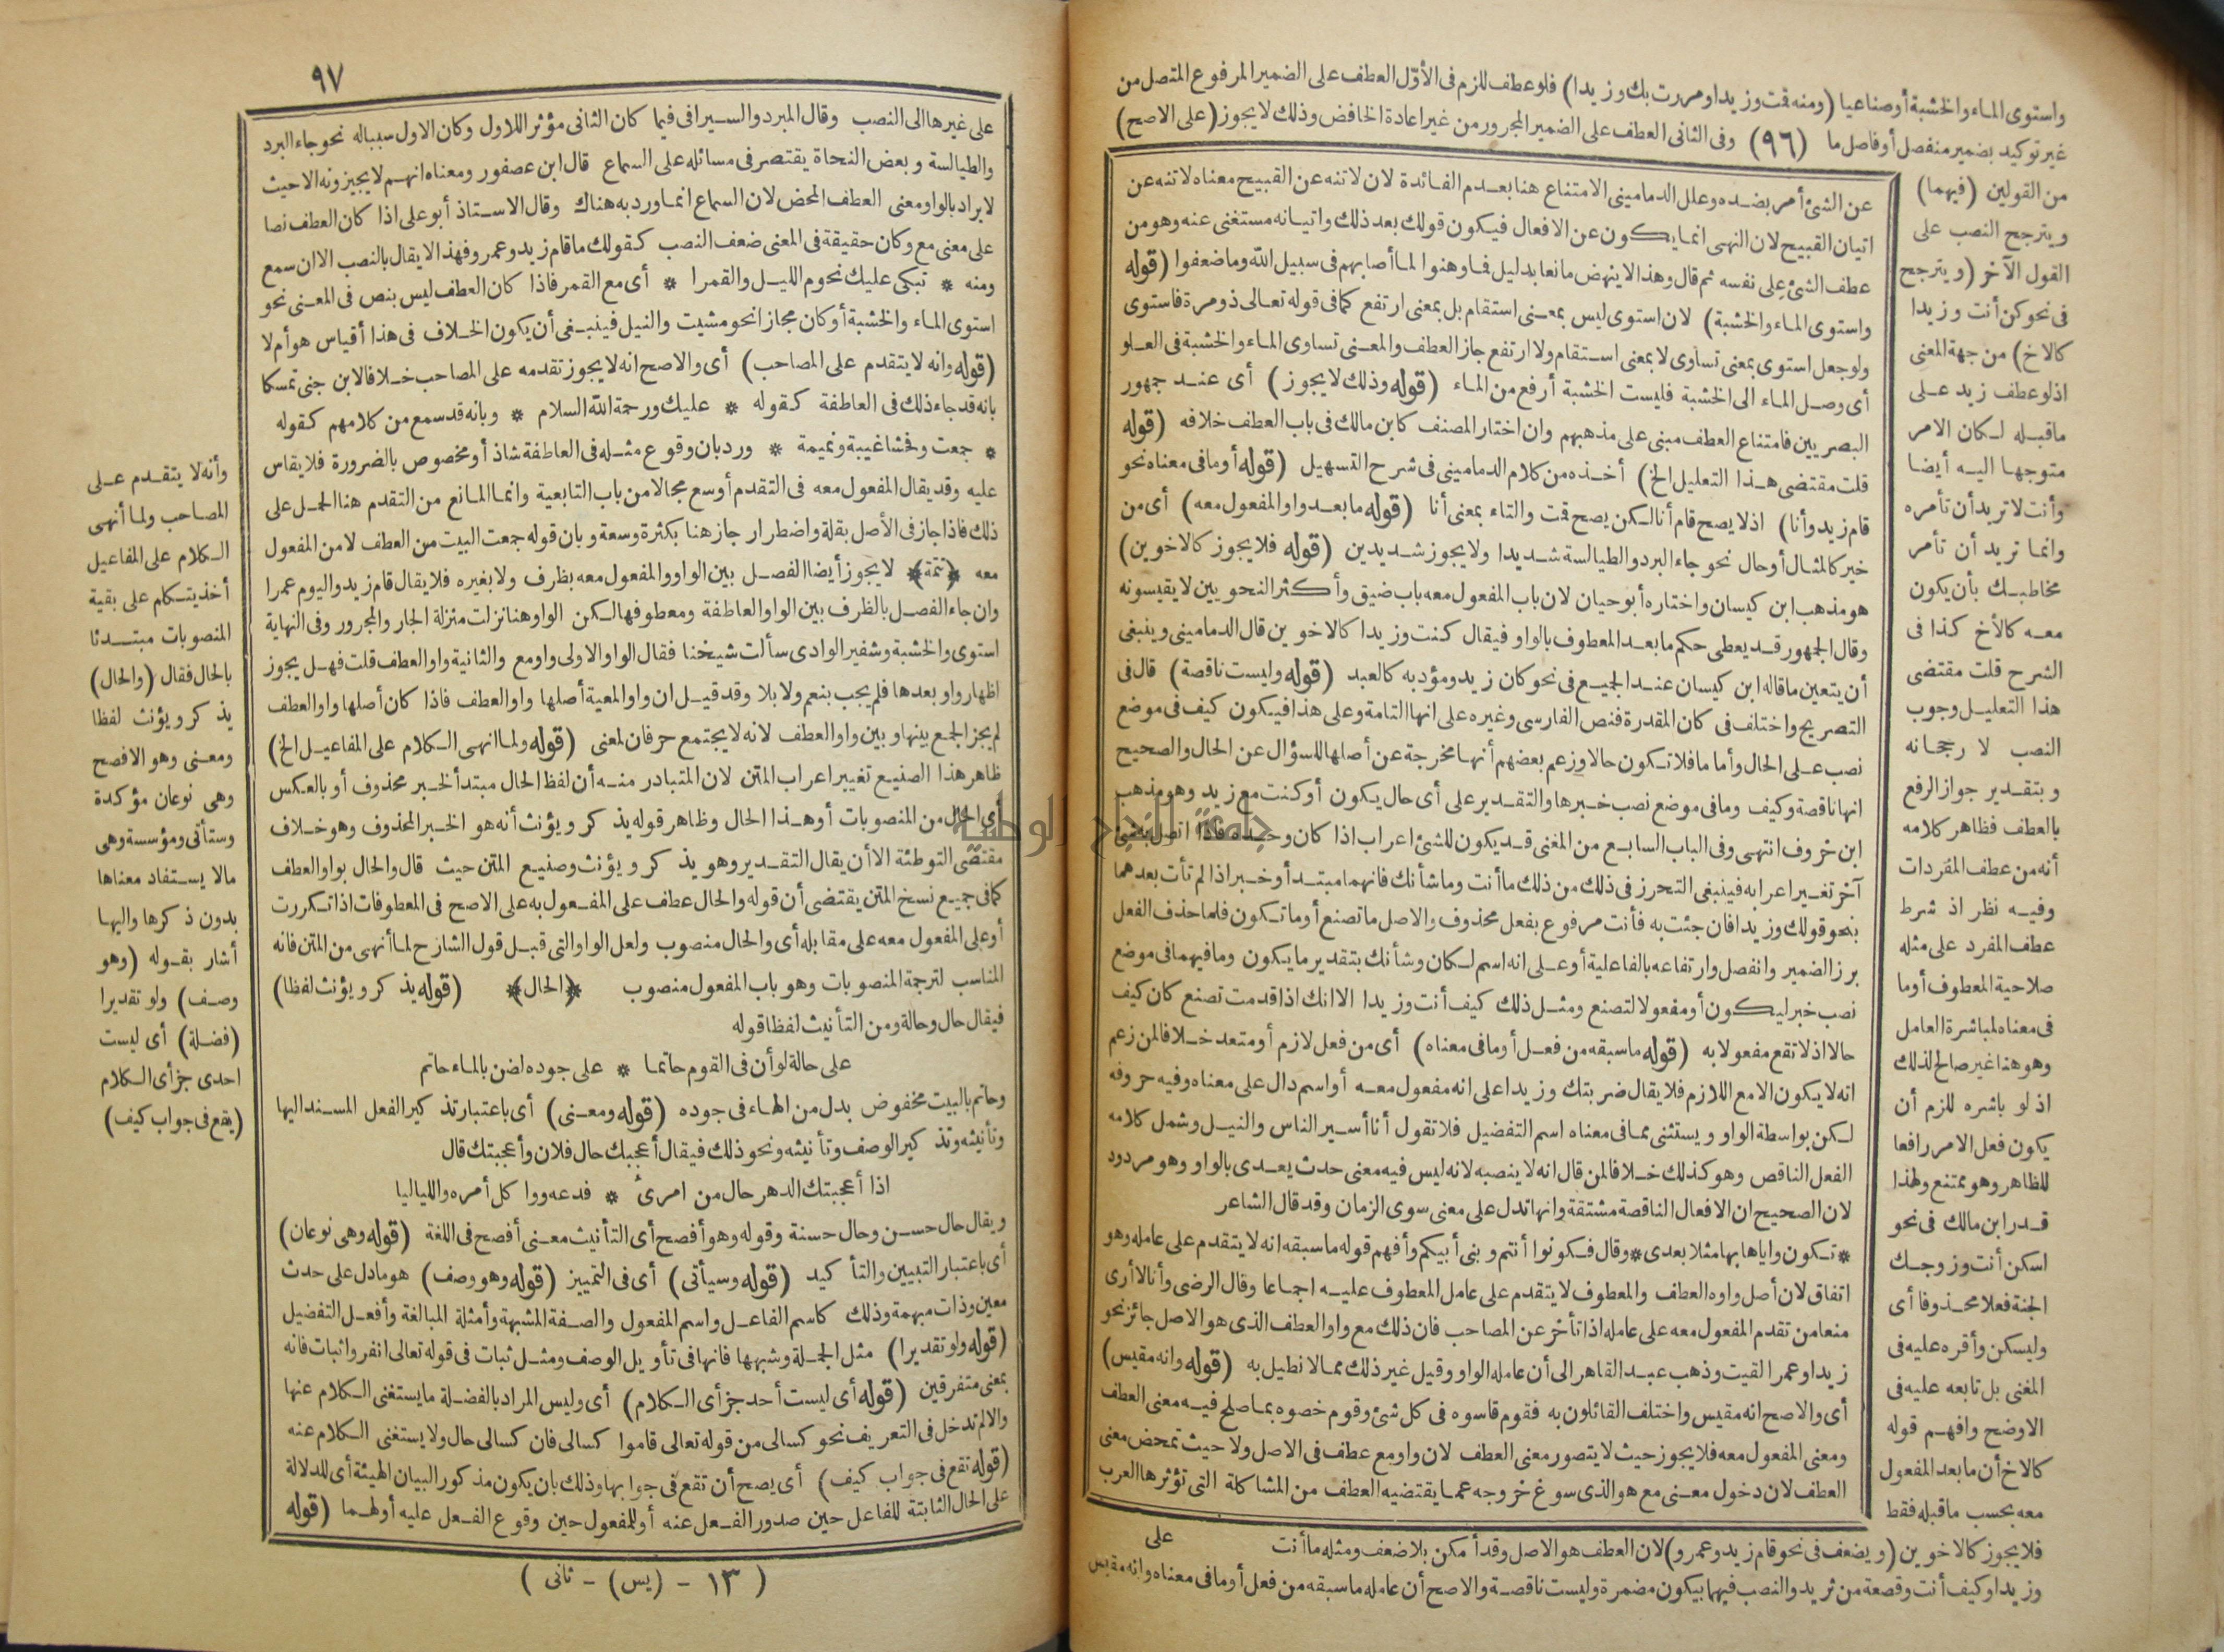 واستوى الماء والخشبة أو صناعيا (ومنه قمت وزيدا ومررت بك وزيدا) فلو عطف للزم فى الأوّل العطف على الضمير المرفوع المتصل من
غير توكيد بضمير منفصل أو فاصل ما (٩٦) وفى الثانى العطف على الضمير المجرور من غير اعادة الخافض وذلك لا يجوز (على الاصح)
من القولين (فيهما)
ويترجح النصب على
القول الآخر (ويترجح
فى نحو كن أنت وزيدا
كالاخ) من جهة المعنى
اذ لو عطف زيد على
ماقبله لكان الامر
متوجها اليه أيضا
وأنت لا تريد أن تأمره
وانما تريد أن تأمر
مخاطبك بأن يكون
معه كالأخ كذا فى
الشرح قلت مقتضى
هذا التعليل وجوب
النصب لا رجحانه
وبتقدير جواز الرفع
بالعطف فظاهر كلامه
أنه من عطف المفردات
وفيه نظر اذ شرط
عطف المفرد على مثله
صلاحية المعطوف أو ما
فى معناه لمباشرة العامل
وهو هنا غير صالح لذلك
اذ لو باشره للزم أن
يكون فعل الامر رافعا
للظاهر وهو ممتنع ولهذا
قدر ابن مالك فى نحو
اسكن أنت وزوجك
الجنة فعلا محذوفا أى
وليسكن وأقره عليه فى
المغنى بل تابعه عليه فى
الاوضح وافهم قوله
كالاخ أن ما بعد المفعول
معه بحسب ماقبله فقط
عن الشئ أمر بضده وعلل الدمامينى الامتناع هنا بعدم الفائدة لان لا تنه عن القبيح معناه لا تنه عن
اتيان القبيح لان النهى انما يكون عن الافعال فيكون قولك بعد ذلك واتيانه مستغنى عنه وهو من
عطف الشئ على نفسه ثم قال وهذا لا ينهض مانعا بدليل فما وهنوا لما أصابهم فى سبيل الله وما ضعفوا (قوله
واستوى الماء والخشبة) لان استوى ليس بمعنى استقام بل بمعنى ارتفع كما فى قوله تعالى ذو مرة فاستوى
ولو جعل استوى بمعنى تساوى لا بمعنى استقام ولا ارتفع جاز العطف والمعنى تساوى الماء والخشبة فى العلو
أى وصل الماء الى الخشبة فليست الخشبة أرفع من الماء (قوله وذلك لا يجوز) أى عند جمهور
البصريين فامتناع العطف مبنى على مذهبهم وان اختار المصنف كابن مالك فى باب العطف خلافه (قوله
قلت مقتضى هذا التعليل الخ) أخذه من كلام الدمامينى فى شرح التسهيل (قوله أو مافى معناه نحو
قام زيد وأنا) اذ لا يصح قام أنا لكن يصح قمت والتاء بمعنى أنا (قوله ما بعد واو المفعول معه) أى من
خبر كالمثال أو حال نحو جاء البرد والطيالسة شديدا ولا يجوز شديدين (قوله فلا يجوز كالاخوين)
هو مذهب ابن كيسان واختاره أبو حيان لان باب المفعول معه باب ضيق وأكثر النحويين لا يقيسونه
وقال الجمهور قد يعطى حكم ما بعد المعطوف بالواو فيقال كنت وزيدا كالاخوين قال الدمامينى وينبغى
أن يتعين ماقاله ابن كيسان عند الجميع فى نحو كان زيد ومؤدبه كالعبد (قوله وليست ناقصة) قال فى
التصريح واختلف فى كان المقدرة فنص الفارسى وغيره على انها التامة وعلى هذا فيكون كيف فى موضع
نصب على الحال وأما ما فلا تكون حالا وزعم بعضهم أنها مخرجة عن أصلها للسؤال عن الحال والصحيح
انها ناقصة وكيف وما فى موضع نصب خبرها والتقدير على أى حال يكون أو كنت مع زيد وهو مذهب
ابن خروف انتهى وفى الباب السابع من المغنى قد يكون للشئ اعراب اذا كان وحده فاذا اتصل به شئ
آخر تغير اعرابه فينبغى التحرز فى ذلك من ذلك ما أنت وما شأنك فانهما مبتدأ وخبر اذا لم تأت بعدهما
بنحو قولك وزيدا فان جئت به فأنت مرفوع بفعل محذوف والاصل ما تصنع أو ما تكون فلما حذف الفعل
برز الضمير وانفصل وارتفاعه بالفاعلية أو على انه اسم لكان وشأنك بتقدير ما يكون وما فيهما فى موضع
نصب خبر ليكون أو مفعولا لتصنع ومثل ذلك كيف أنت وزيدا الا انك اذا قدمت تصنع كان كيف
حالا اذ لا تقع مفعولا به (قوله ما سبقه من فعل أو مافى معناه) أى من فعل لازم أو متعد خلافا لمن زعم
انه لا يكون الا مع اللازم فلا يقال ضربتك وزيدا على انه مفعول معه أو اسم دال على معناه وفيه حروفه
لكن بواسطة الواو ويستثنى مما فى معناه اسم التفضيل فلا تقول أنا أسير الناس والنيل وشمل كلامه
الفعل الناقص وهو كذلك خلافا لمن قال انه لا ينصبه لانه ليس فيه معنى حدث يعدى بالواو وهو مردود
لان الصحيح ان الافعال الناقصة مشتقة وانها تدل على معنى سوى الزمان وقد قال الشاعر
* تكون واياها بها مثلا بعدى * وقال فكونوا أنتم وبنى أبيكم وأفهم قوله ما سبقه انه لا يتقدم على عامله وهو
اتفاق لان أصل واوه العطف والمعطوف لا يتقدم على عامل المعطوف عليه اجماعا وقال الرضى وأنا لا أرى
منعا من تقدم المفعول معه على عامله اذا تأخر عن المصاحب فان ذلك مع واو العطف الذى هو الاصل جائز نحو
زيدا وعمرا لقيت وذهب عبد القاهر الى أن عامله الواو وقيل غير ذلك مما لا نطيل به (قوله وانه مقيس)
أى والاصح انه مقيس واختلف القائلون به فقوم قاسوه فى كل شئ وقوم خصوه بما صلح فيه معنى العطف
ومعنى المفعول معه فلا يجوز حيث لا يتصور معنى العطف لان واو مع عطف فى الاصل ولا حيث تمحض معنى
العطف لان دخول معنى مع هو الذى سوغ خروجه عما يقتضيه العطف من المشاكلة التى تؤثرها العرب
على
فلا يجوز كالاخوين (ويضعف فى نحو قام زيد وعمرو) لان العطف هو الاصل وقد أمكن بلا ضعف ومثله ما أنت
وزيدا وكيف أنت وقصعة من ثريد والنصب فيهما بيكون مضمرة وليست ناقصة والاصح أن عامله ما سبقه من فعل أو مافى معناه وانه مقيس
٩٧
على غيرها الى النصب وقال المبرد والسيرافى فيما كان الثانى مؤثرا للاول وكان الاول سببا له نحو جاء البرد
والطيالسة وبعض النحاة يقتصر فى مسائله على السماع قال ابن عصفور ومعناه انهم لا يجيزونه الا حيث
لا يراد بالواو معنى العطف المحض لان السماع انما ورد به هناك وقال الاستاذ أبو على اذا كان العطف نصا
على معنى مع وكان حقيقة فى المعنى ضعف النصب كقولك ما قام زيد وعمرو فهذا لا يقال بالنصب الا ان سمع
ومنه * تبكى عليك نجوم الليل والقمرا * أى مع القمر فاذا كان العطف ليس بنص فى المعنى نحو
استوى الماء والخشبة أو كان مجازا نحو مشيت والنيل فينبغى أن يكون الخلاف فى هذا أقياس هو أم لا
(قوله وانه لا يتقدم على المصاحب) أى والاصح انه لا يجوز تقدمه على المصاحب خلافا لابن جنى تمسكا
بانه قد جاء ذلك فى العاطفة كقوله * عليك ورحمة الله السلام * وبانه قد سمع من كلامهم كقوله
* جمعت وفحشا غيبة ونميمة * ورد بان وقوع مثله فى العاطفة شاذ أو مخصوص بالضرورة فلا يقاس
عليه وقد يقال المفعول معه فى التقدم أوسع مجالا من باب التابعية وانما المانع من التقدم هنا الحمل على
ذلك فاذا جاز فى الأصل بقلة واضطرار جاز هنا بكثرة وسعة وبان قوله جمعت البيت من العطف لا من المفعول
معه ﴿تتمة﴾ لا يجوز أيضا الفصل بين الواو والمفعول معه بظرف ولا بغيره فلا يقال قام زيد واليوم عمرا
وان جاء الفصل بالظرف بين الواو العاطفة ومعطوفها لكن الواو هنا نزلت منزلة الجار والمجرور وفى النهاية
استوى والخشبة وشفير الوادى سألت شيخنا فقال الواو الاولى واو مع والثانية واو العطف قلت فهل يجوز
اظهار واو بعدها فلم يجب بنعم ولا بلا وقد قيل ان واو المعية أصلها واو العطف فاذا كان أصلها واو العطف
لم يجز الجمع بينها وبين واو العطف لانه لا يجتمع حرفان لمعنى (قوله ولما انهى الكلام على المفاعيل الخ)
ظاهر هذا الصنيع تغيير اعراب المتن لان المتبادر منه أن لفظ الحال مبتدأ لخبر محذوف أو بالعكس
أى الحال من المنصوبات أو هذا الحال وظاهر قوله يذكر ويؤنث أنه هو الخبر المحذوف وهو خلاف
مقتضى التوطئة الا أن يقال التقدير وهو يذكر ويؤنث وصنيع المتن حيث قال والحال بواو العطف
كما فى جميع نسخ المتن يقتضى أن قوله والحال عطف على المفعول به على الاصح فى المعطوفات اذا تكررت
أو على المفعول معه على مقابله أى والحال منصوب ولعل الواو التى قبل قول الشارح لما أنهى من المتن فانه
المناسب لترجمة المنصوبات وهو باب المفعول منصوب ﴿الحال﴾ (قوله يذكر ويؤنث لفظا)
فيقال حال وحالة ومن التأنيث لفظا قوله
على حالة لو أن فى القوم حاتما * على جوده لضن بالماء حاتم
وحاتم بالبيت مخفوض بدل من الهاء فى جوده (قوله ومعنى) أى باعتبار تذكير الفعل المسند اليها
وتأنيثه وتذكير الوصف وتأنيثه ونحو ذلك فيقال أعجبك حال فلان وأعجبتك قال
اذا أعجبتك الدهر حال من امرئ * فدعه ووا كل أمره واللياليا
ويقال حال حسن وحال حسنة وقوله وهو أفصح أى التأنيث معنى أفصح فى اللغة (قوله وهى نوعان)
أى باعتبار التبيين والتأكيد (قوله وسيأتى) أى فى التمييز (قوله وهو وصف) هو مادل على حدث
معين وذات مبهمة وذلك كاسم الفاعل واسم المفعول والصفة المشبهة وأمثلة المبالغة وأفعل التفضيل
(قوله ولو تقديرا) مثل الجملة وشبهها فانها فى تأويل الوصف ومثل ثبات فى قوله تعالى انفروا ثبات فانه
بمعنى متفرقين (قوله أى ليست أحد جزأى الكلام) أى وليس المراد بالفضلة ما يستغنى الكلام عنها
والا لم تدخل فى التعريف نحو كسالى من قوله تعالى قاموا كسالى فان كسالى حال ولا يستغنى الكلام عنه
(قوله تقع فى جواب كيف) أى يصح أن تقع فى جوابها وذلك بان يكون مذكورا لبيان الهيئة أى للدلالة
على الحال الثابتة للفاعل حين صدور الفعل عنه أو للمفعول حين وقوع الفعل عليه أو لهما (قوله
وأنه لا يتقدم على
المصاحب ولما أنهى
الكلام على المفاعيل
أخذ يتكلم على بقية
المنصوبات مبتدئا
بالحال فقال (والحال)
يذكر ويؤنث لفظا
ومعنى وهو الافصح
وهى نوعان مؤكدة
وستأتى ومؤسسة وهى
مالا يستفاد معناها
بدون ذكرها واليها
أشار بقوله (وهو
وصف) ولو تقديرا
(فضلة) أى ليست
احدى جزأى الكلام
(يقع فى جواب كيف)
(١٣ - (يس) - ثانى)
جامعة النجاح الوطنية